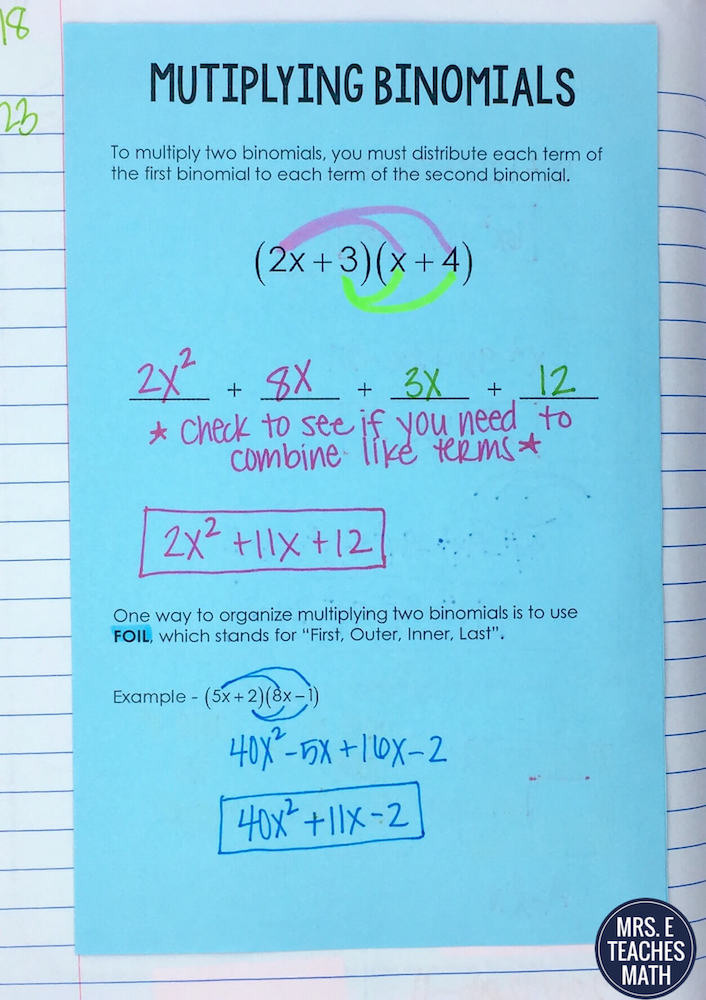 18
23
MUTIPLYING BINOMIALS
To multiply two binomials, you must distribute each term of
the first binomial to each term of the second binomial.
(2x + 3)(x + 4)
2x² + 8x + 3x + 12
* check to see if you need to
combine like terms *
2x² + 11x + 12
One way to organize multiplying two binomials is to use
FOIL, which stands for “First, Outer, Inner, Last”.
Example - (5x + 2)(8x – 1)
40x² – 5x + 16x – 2
40x² + 11x – 2
MRS. E
TEACHES
MATH